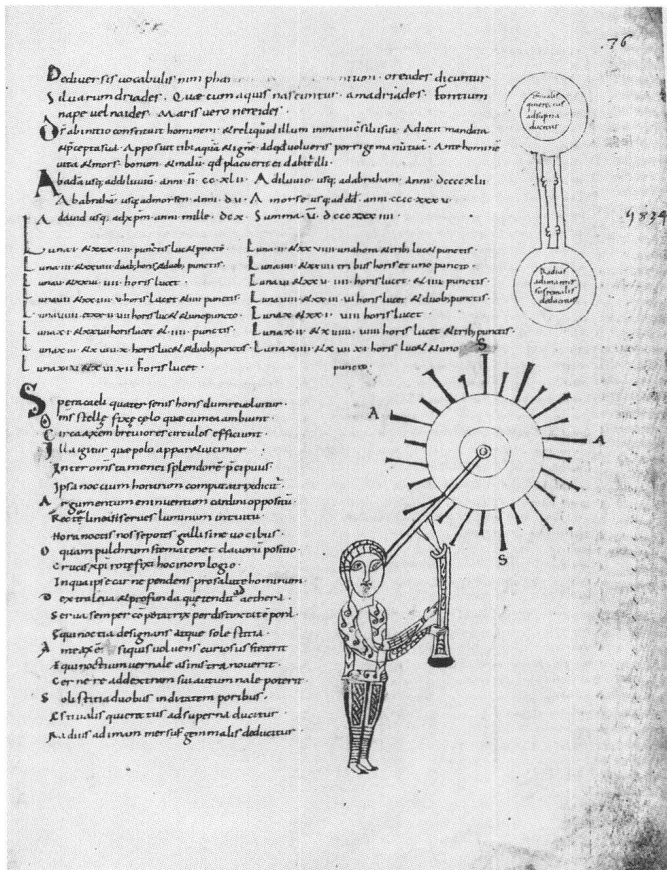 .76
De diuersis uocabulis nimphar nium. oreades dicuntur
Siluarum driades. Quae cum aquis nascuntur. amadriades. fontium
nape uel naides. Maris uero nereides.
Or ab initio constituit hominem & reliquid illum in manu consilii sui. Adiecit mandata
& precepta sua. Apposuit tibi aqua & igne. ad qd uolueris porrige manu tua. Ante homine
uita & mors. bonum & malu. qd placuerit ei dabit illi.
Ab ada usq; ad diluuiu. anni II. CC. XLII. A diluuio usq; ad abraham. anni. DCCCC XLII
Ab abraha. usq; ad morsen. anni. D. V. A morse usq; ad dd. anni. CCCC. XXX. V.
A dauid usq; ad xpm. anni mille. DC X. Summa. V. DCCC XXX IIII.
9834
Luna I. & XXX. IIII. punctis luc& nocte
Luna II. & XX VIIII. una hora & trib; luc& punctis.
Luna III. & XXVIII. duab; horis & duob; punctis.
Luna IIII. & XXVII. tribus horis et uno puncto.
Luna V. & XXVI. IIII. horis lucet.
Luna VI. & XX V. IIII. horis lucet & IIII. punctis.
Luna VII. & XX IIII. V. horis lucet & III punctis.
Luna VIII. & XX III. VI. horis lucet & duob; punctis.
Luna VIIII. & XX II. VII horis luc& & uno puncto.
Luna X. & XX I. VIII horis lucet.
Luna X I. & XX VIII horis lucet & IIII. punctis.
Luna X II. & X VIIII. VIIII horis lucet & trib; punctis.
Luna X III. & X VIII. X. horis luc& & duob; punctis.
Luna X IIII. & X VII XI horis luc& & uno
puncto.
Luna X V. & X VI. X II horis lucet.
Spera caeli quater senis horis dum reuoluitur.
Omis stelle fixe celo que cum ea ambiunt
Circa axem breuiores circulos efficiunt.
Illa igitur que polo appar& uicinior
Inter omis tamen ei splendore pcipuus
Ipsa noctium horarum computatrix dicit
Argumentum en inuentum cardini oppositu
Recte lineas si serues luminum intuitu
Hora noctis nosse potes galli sine uocibus.
O quam pulchrum stema tenet clauoru positio
Crucis xpi rite fixa hoc in orologio.
In qua ipse carne pendens pro salute hominum
Dextra leua & profunda que tendun& aethera.
Serua semper copetatrix per distincta te poni.
Equinoctia designans atque solestitia.
Ante axe siquis uoluens curiosus steterit
Aequinoctium uernale a sinistra nouerit.
Cernere ad dextram sui autumnale poterit
Solistitia duobus inditatem poribus.
Estiualis quieratus ad superna ducitur
Radius ad imam mersus gemmalis deducitur
ad supna
ducitur
Radius
ad ima mer
deducitur
S
A
A
S